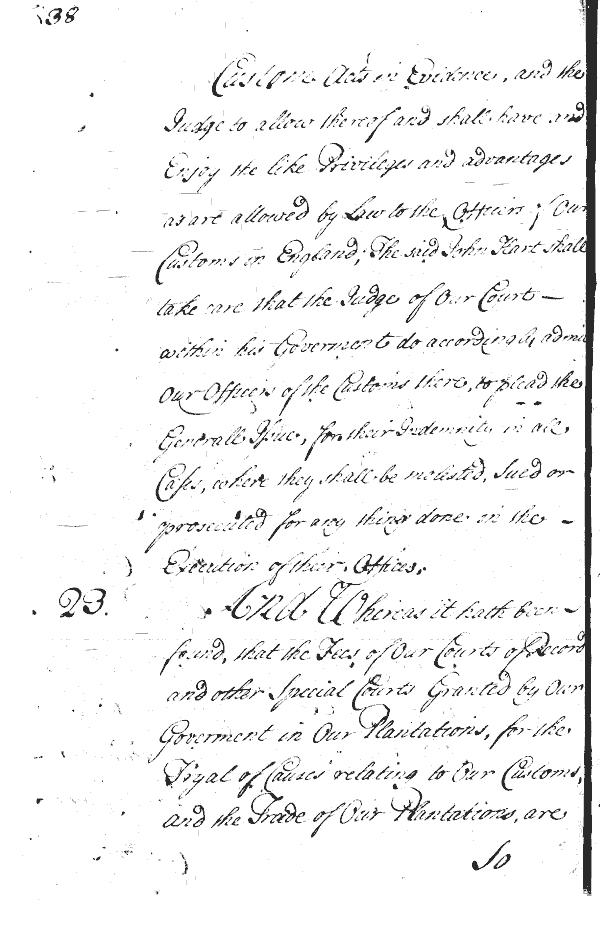 38
Custome Acts in Evidence, and the
Judge to allow thereof and shall have and
Enjoy the like Privileges and advantages
as are allowed by Law to the Officers of Our
Customs in England; The said John Hart shall
take care that the Judge of Our Court —
within his Goverment do accordingly admit
Our Officers of the Customs there, to plead the
Generall Issue, for their Indemnity in all
Cases, where they shall be molested, Sued or
prosecuted for any thing done in the —
Execution of their Offices.
23. And Whereas it hath been —
found, that the Fees of Our Courts of Record
and other Special Courts Granted by Our
Goverment in Our Plantations, for the
Tryal of Causes relating to Our Customs,
and the Trade of Our Plantations, are
So